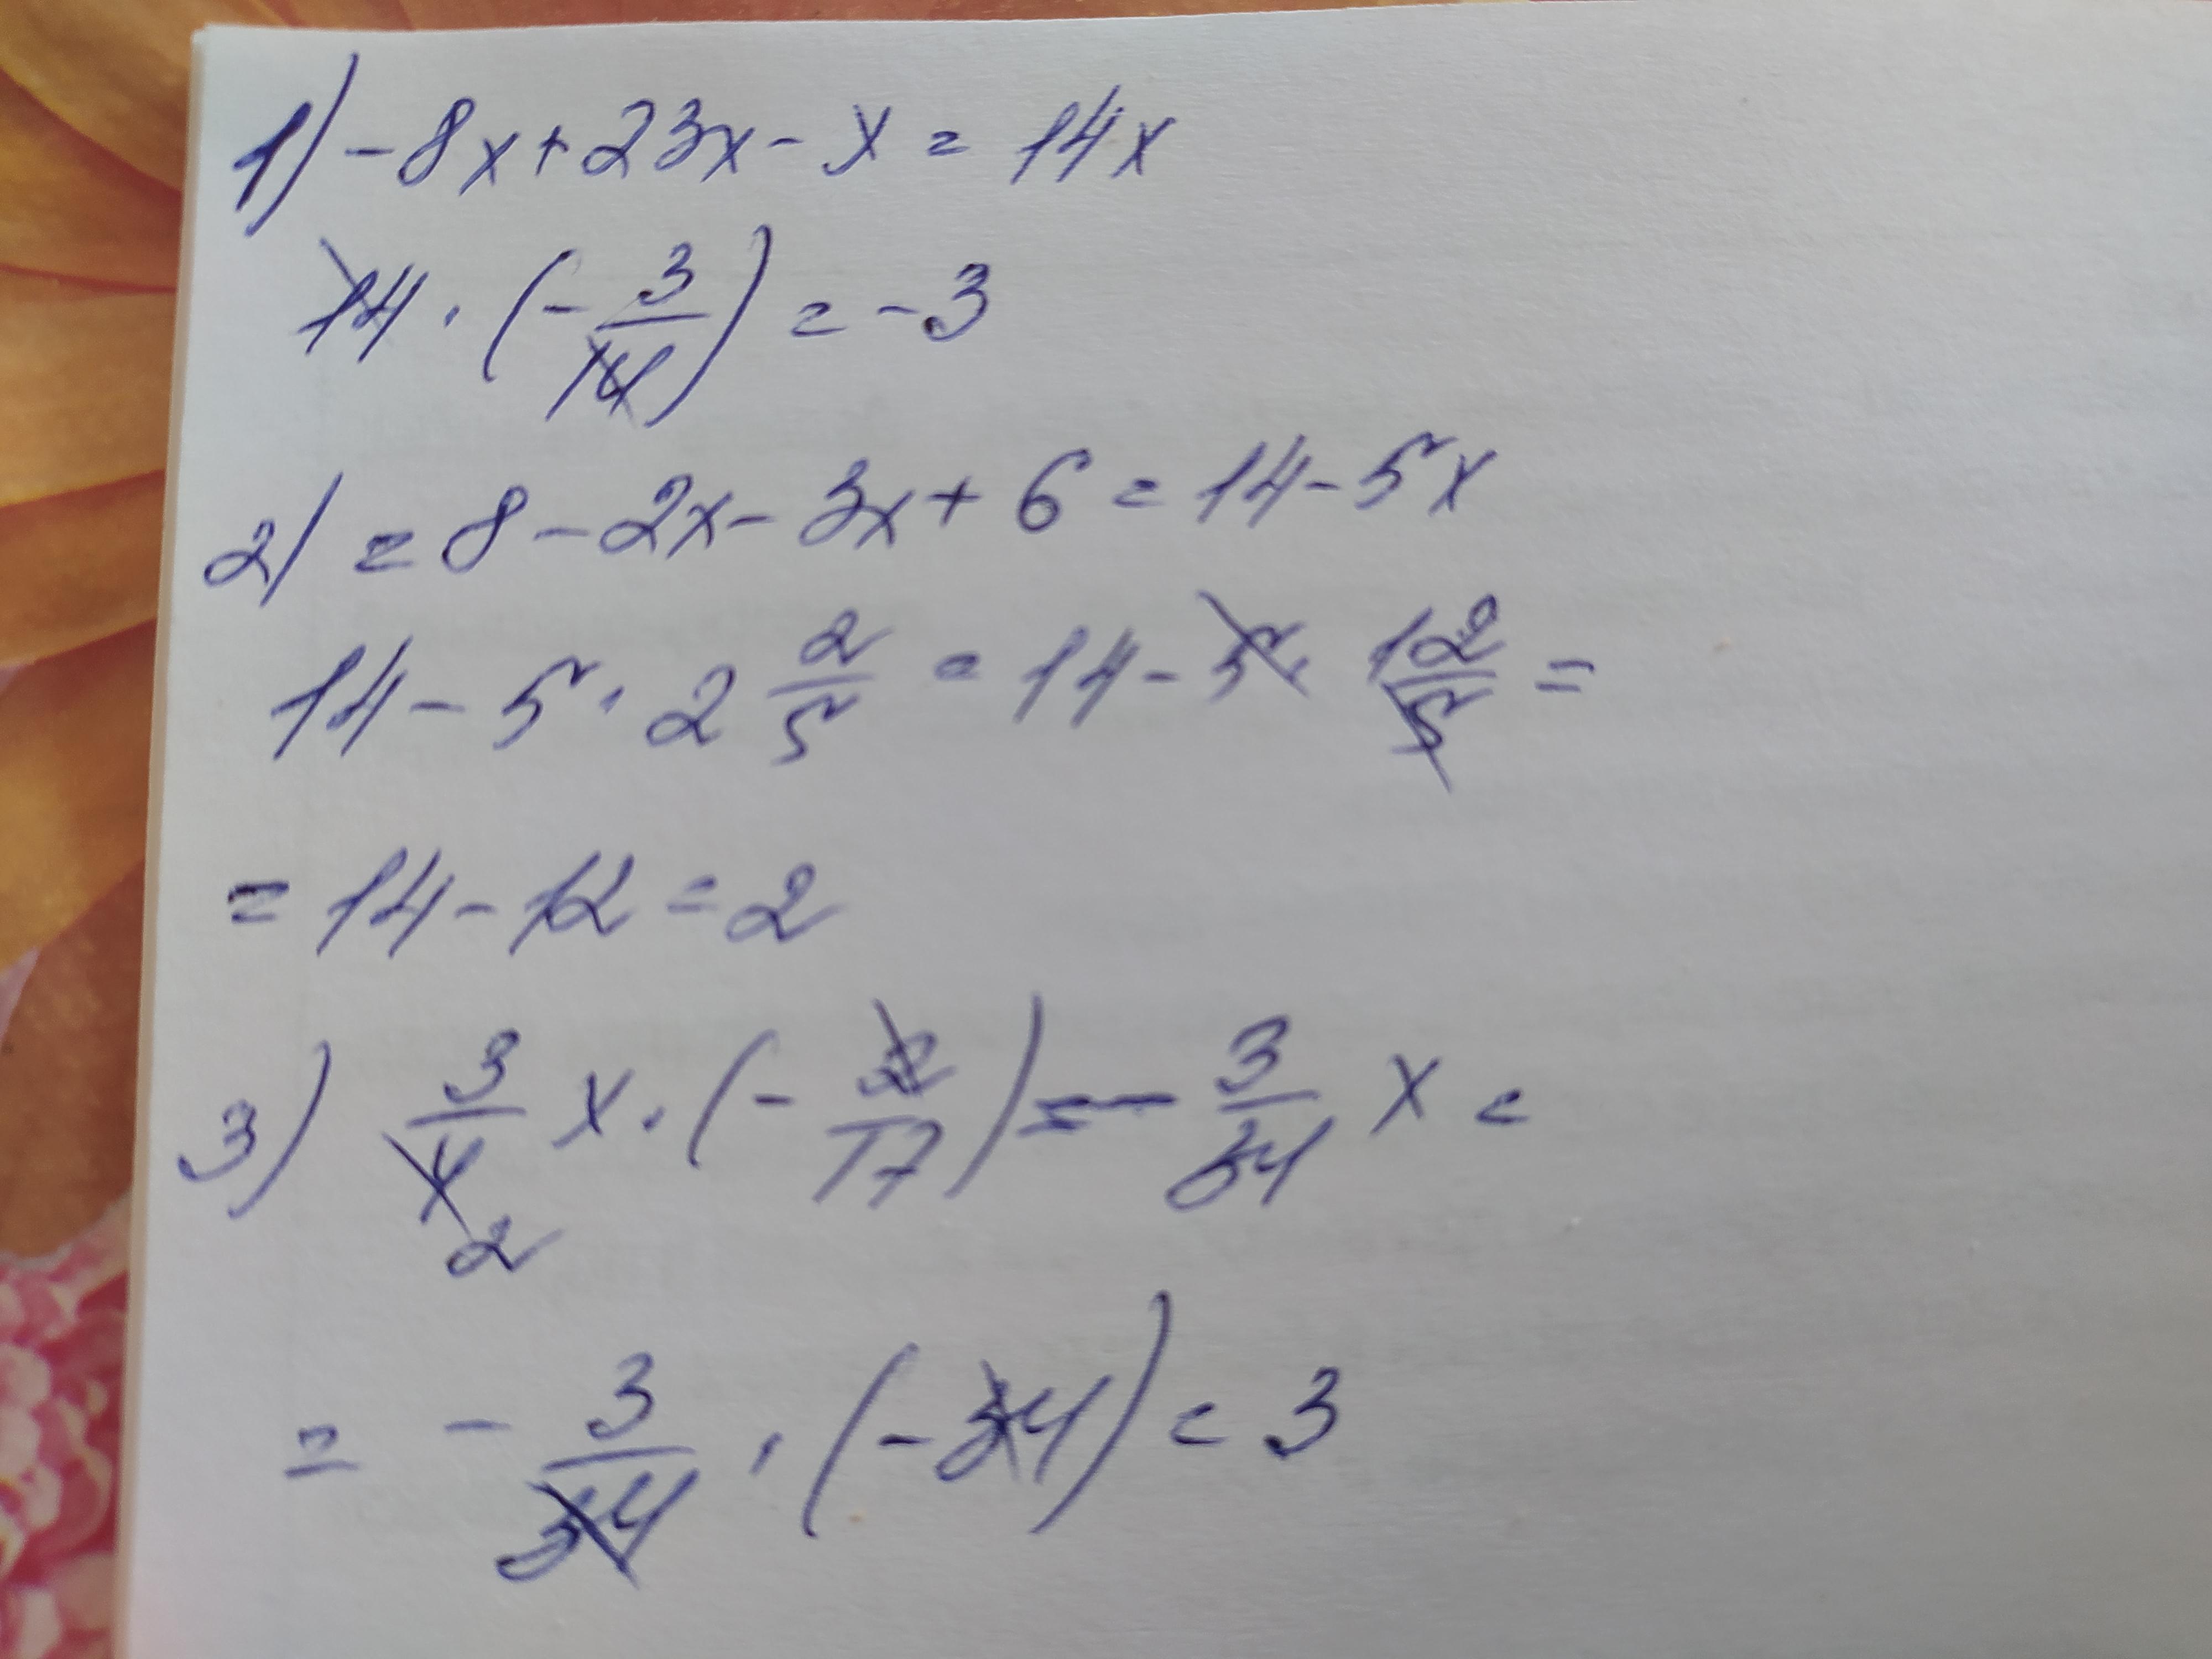 1) -8x+23x-x=14x
14·(-3/14)=-3
2) =8-2x-3x+6=14-5x
14-5·2 2/5=14-5·12/5=
=14-12=2
3) 3/4 x·(-2/17)=-3/34 x=
2
=-3/34·(-34)=3